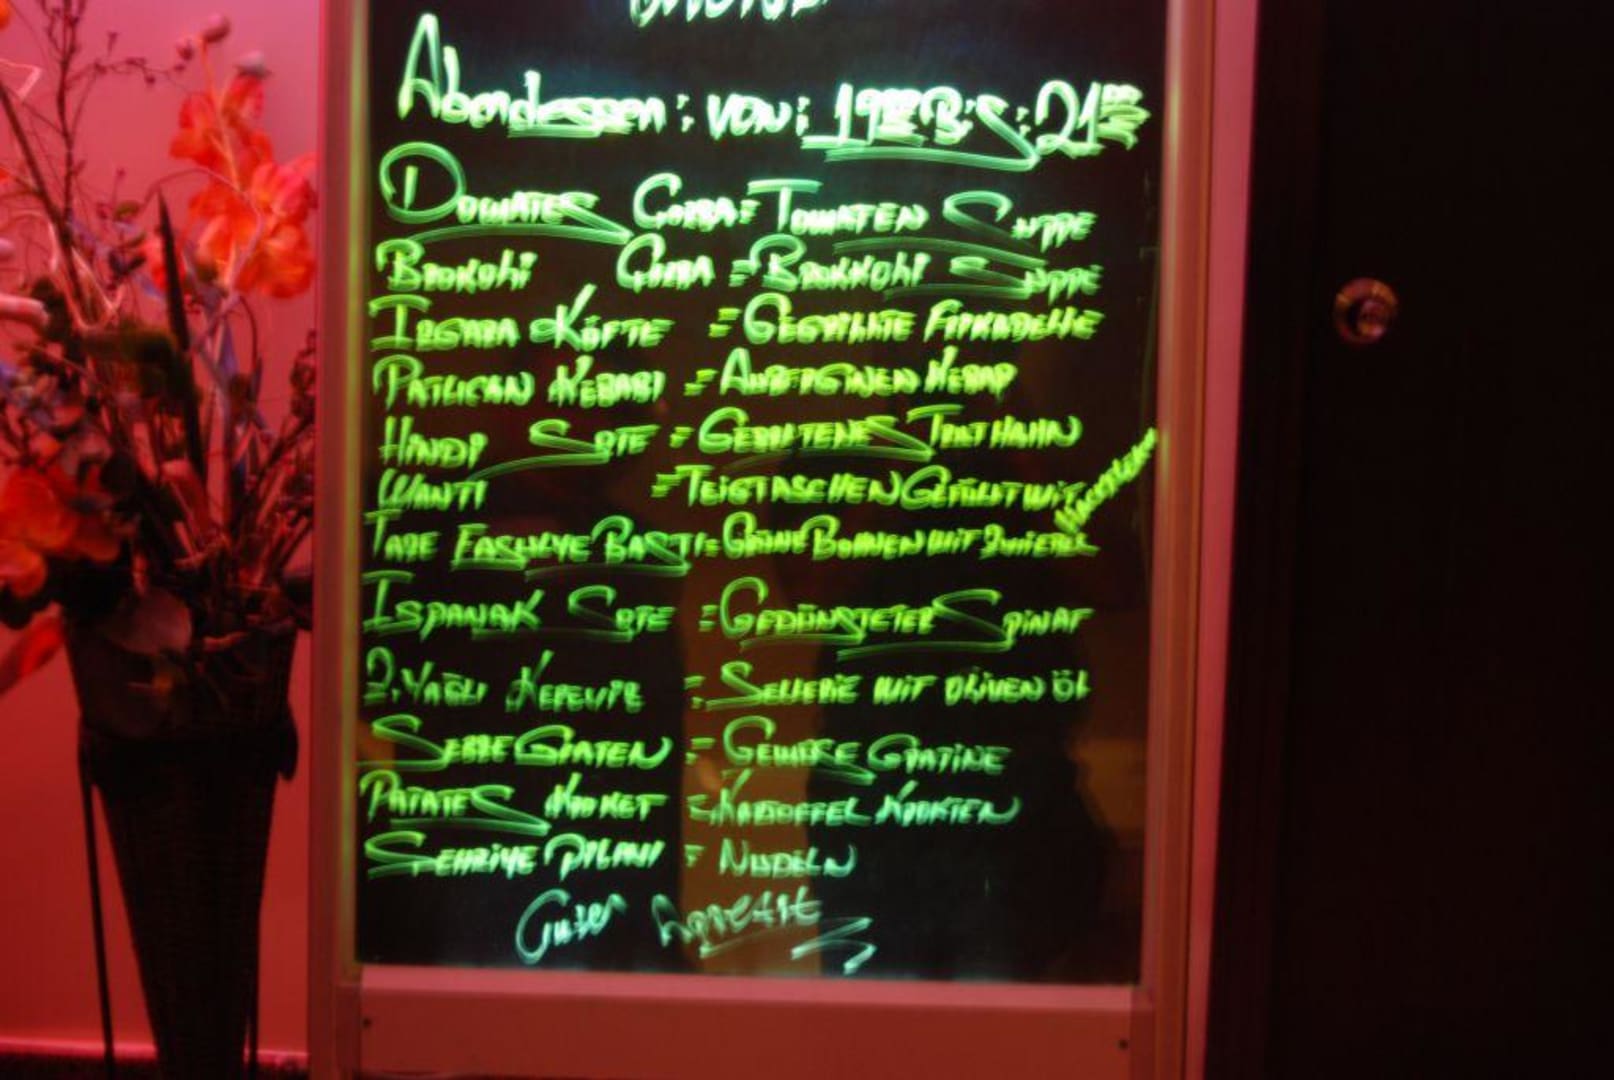 Abendessen: von: 19⁰⁰ Bis: 21⁰⁰
Domates Corba = Tomaten Suppe
Brokoli Corba = Brokkoli Suppe
Izgara Köfte = Gegrillte Frikadelle
Patlican Kebabi = Auberginen Kebap
Hindi Sote = Gebratenes Truthahn
Manti = Teigtaschen Gefüllt mit
Taze Fasulye Basti = Grüne Bohnen mit
Ispanak Sote = Gedünsteter Spinat
Z.Yağli Kereviz = Sellerie mit Oliven öl
Sebze Graten = Gemüse Gratine
Patates Kroket = Kartoffel Krokten
Sehriye Pilavi = Nudeln
Guten Appetit